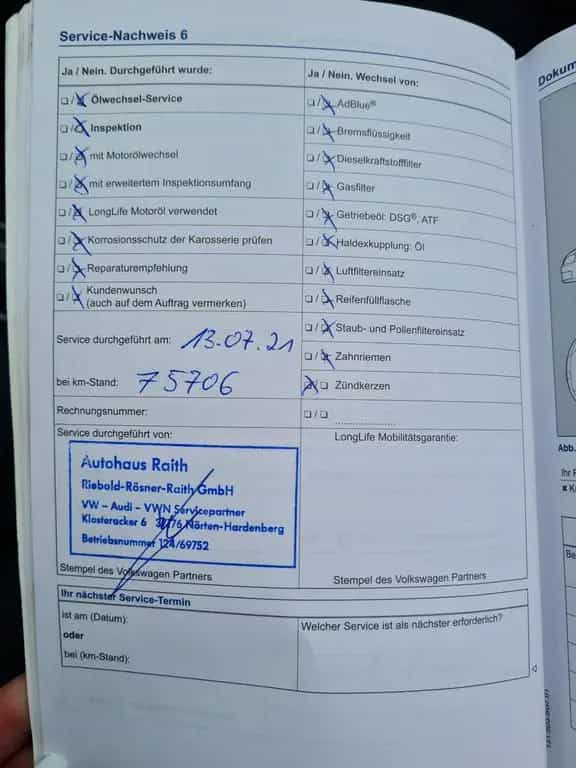 Service-Nachweis 6
Ja / Nein. Durchgeführt wurde:
Ölwechsel-Service
Inspektion
mit Motorölwechsel
mit erweitertem Inspektionsumfang
LongLife Motoröl verwendet
Korrosionsschutz der Karosserie prüfen
Reparaturempfehlung
Kundenwunsch
(auch auf dem Auftrag vermerken)
Service durchgeführt am: 13.07.21
bei km-Stand: 75706
Rechnungsnummer:
Service durchgeführt von:
Autohaus Raith
Riebold-Rösner-Raith GmbH
VW – Audi – VWN Servicepartner
Klosteracker 6 37176 Nörten-Hardenberg
Betriebsnummer 124/69752
Stempel des Volkswagen Partners
Ja / Nein. Wechsel von:
AdBlue®
Bremsflüssigkeit
Dieselkraftstofffilter
Gasfilter
Getriebeöl: DSG®, ATF
Haldexkupplung: Öl
Luftfiltereinsatz
Reifenfüllflasche
Staub- und Pollenfiltereinsatz
Zahnriemen
Zündkerzen
LongLife Mobilitätsgarantie:
Stempel des Volkswagen Partners
Ihr nächster Service-Termin
ist am (Datum):
oder
bei (km-Stand):
Welcher Service ist als nächster erforderlich?
Dokum
Abb.
Ihr
Be